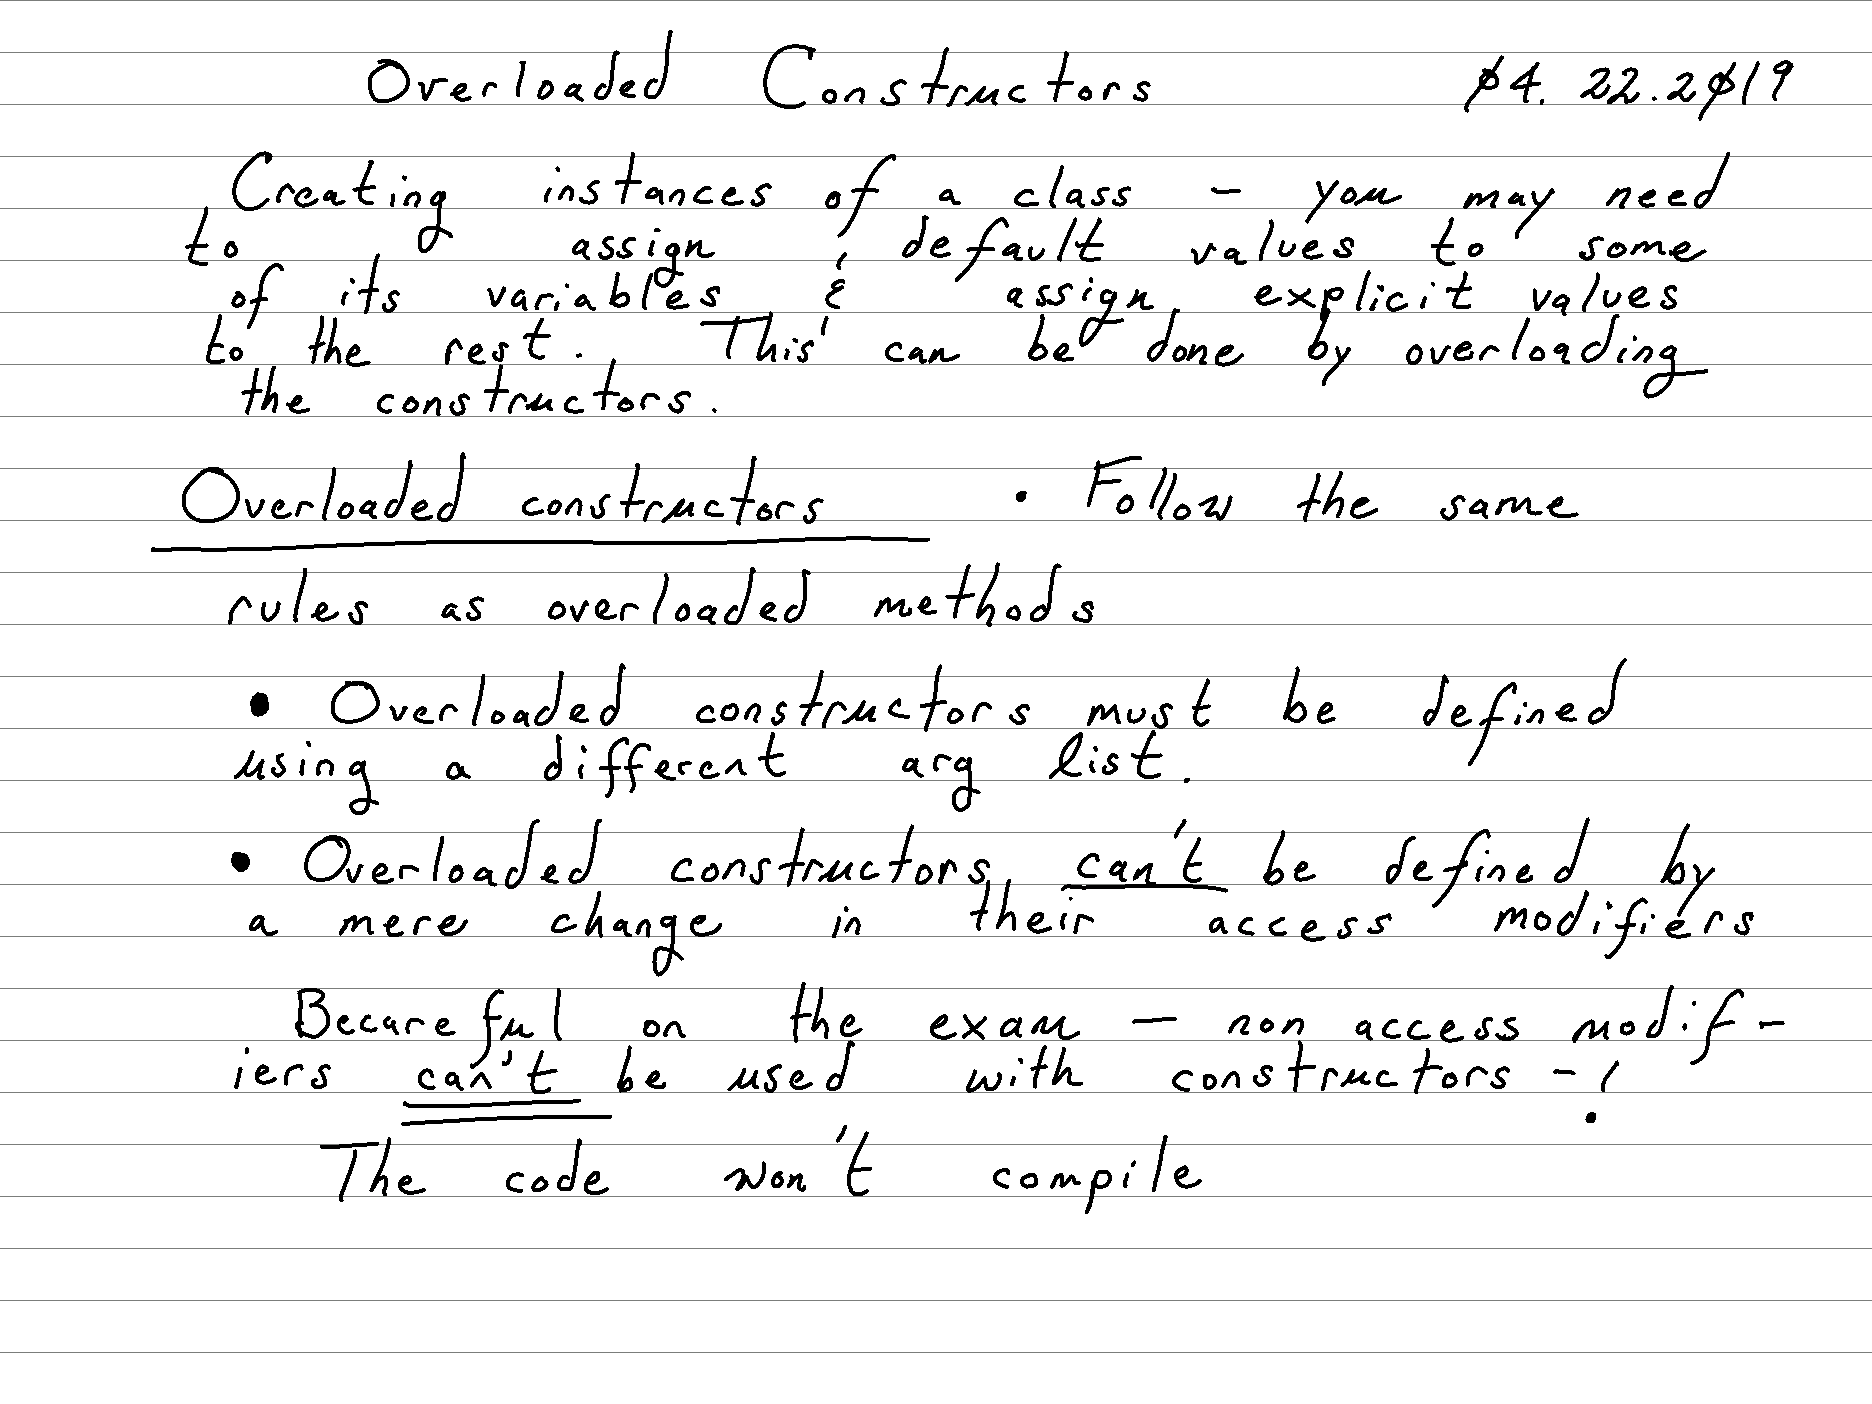 Overloaded Constructors 04. 22.2019
Creating instances of a class - you may need
to assign default values to some
of its variables & assign explicit values
to the rest. This can be done by overloading
the constructors.
Overloaded constructors • Follow the same
rules as overloaded methods
• Overloaded constructors must be defined
using a different arg list.
• Overloaded constructors can't be defined by
a mere change in their access modifiers
Becareful on the exam - non access modif-
iers can't be used with constructors - !
The code won't compile